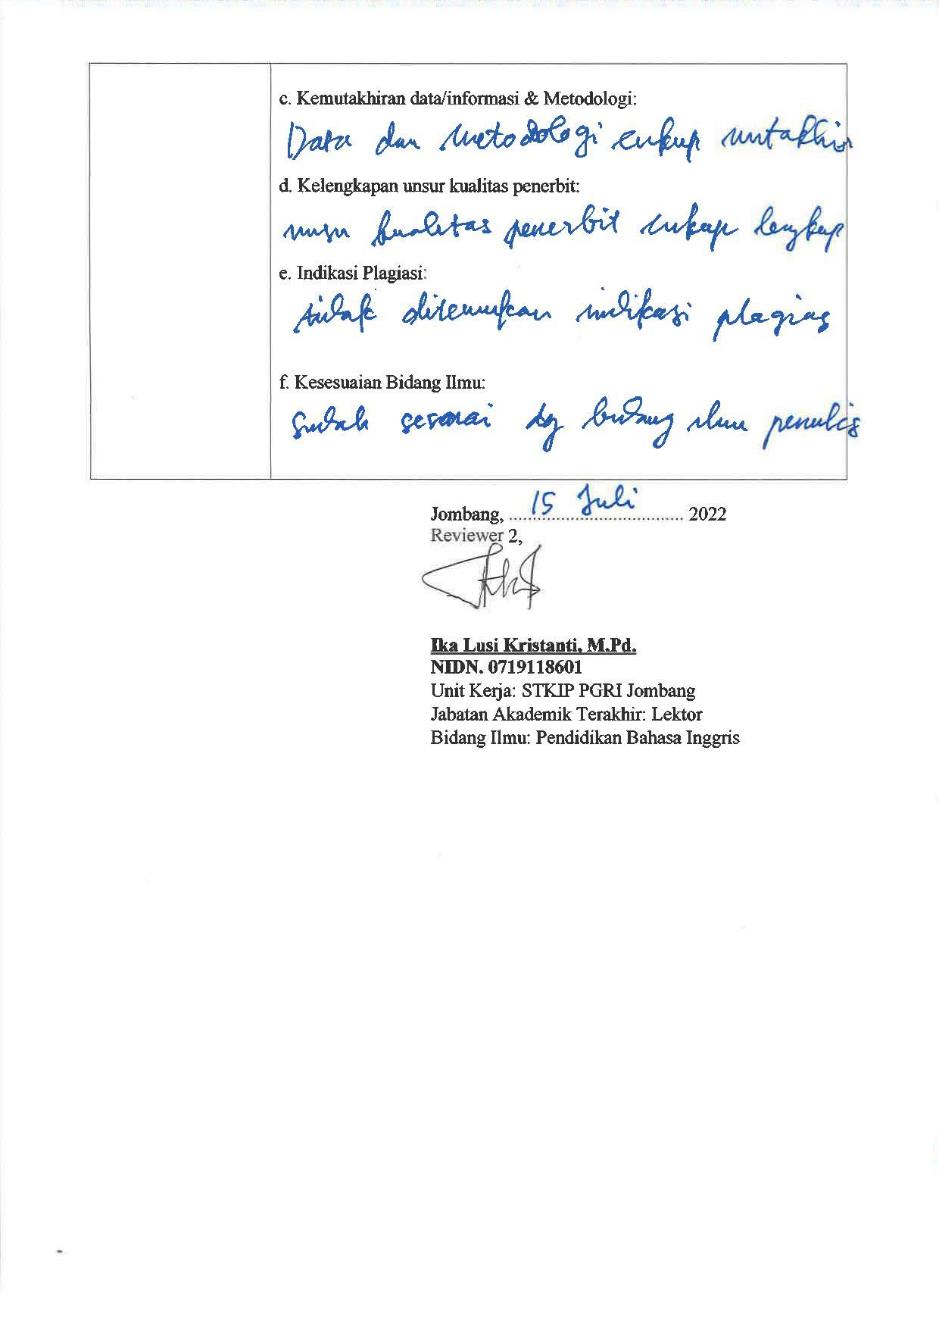 c. Kemutakhiran data/informasi & Metodologi:
Data dan Metodologi cukup mutakhir
d. Kelengkapan unsur kualitas penerbit:
unsur kualitas penerbit cukup lengkap
e. Indikasi Plagiasi:
tidak ditemukan indikasi plagias
f. Kesesuaian Bidang Ilmu:
Sudah sesuai dg bidang ilmu penulis
Jombang, 15 Juli 2022
Reviewer 2,
Ika Lusi Kristanti, M.Pd.
NIDN. 0719118601
Unit Kerja: STKIP PGRI Jombang
Jabatan Akademik Terakhir: Lektor
Bidang Ilmu: Pendidikan Bahasa Inggris